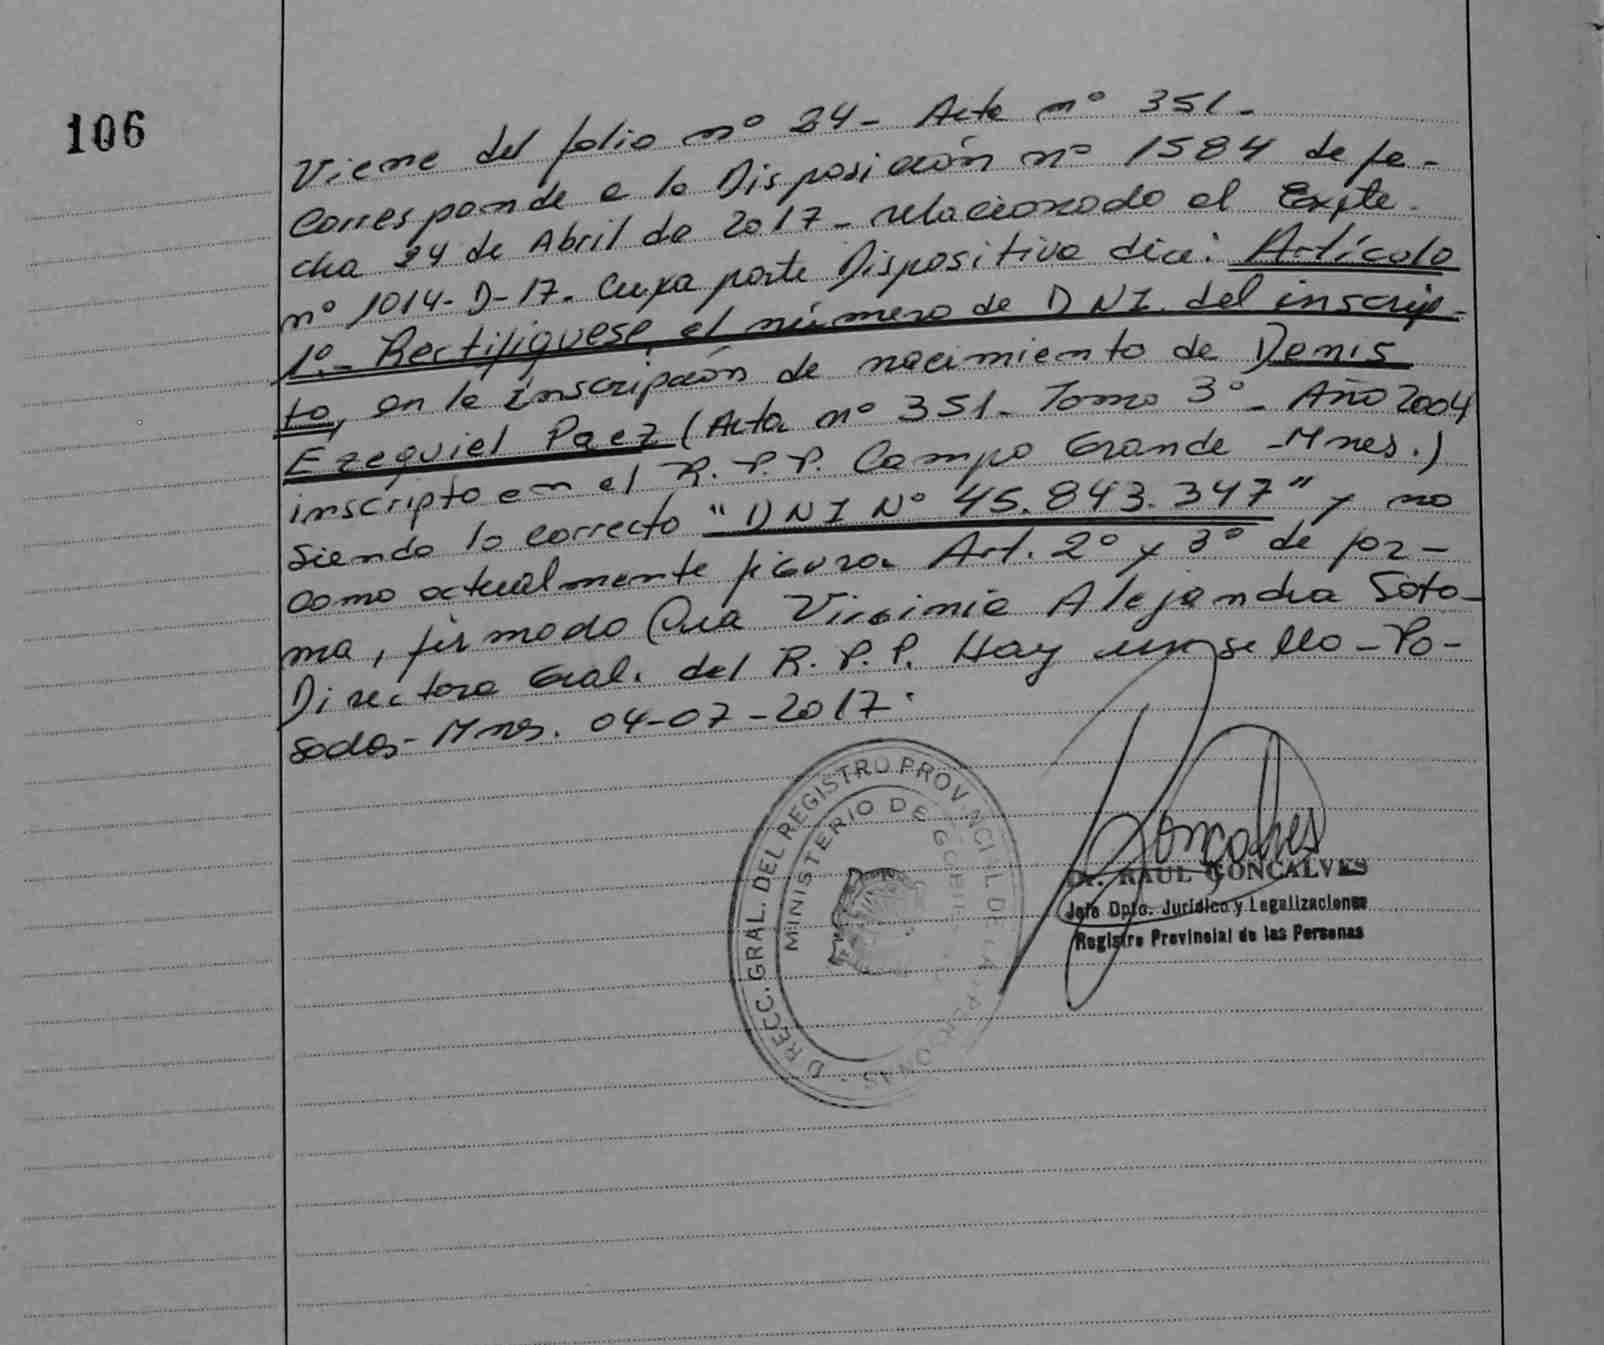 106
Viene del folio nº 24- Acta nº 351-
Corresponde a la Disposición nº 1584 de fe-
cha 24 de Abril de 2017- relacionado al Expte.
nº 1014-D-17. Cuya parte Dispositiva dice: Artículo
1º.- Rectifíquese el número de DNI. del inscrip-
to, en la inscripción de nacimiento de Denis
Ezequiel Paez (Acta nº 351- Tomo 3º- Año 2004
inscripto en el R.P.P. Campo Grande -Mnes.)
siendo lo correcto "DNI Nº 45.843.347" y no
como actualmente figura. Art. 2º y 3º de for-
ma, firmado Dra Virginia Alejandra Soto-
Directora Gral. del R.P.P. Hay un sello - Po-
sadas- Mnes. 04-07-2017.
DIRECC. GRAL. DEL REGISTRO PROVINCIAL DE LAS PERSONAS
MINISTERIO DE GOBIERNO
Goncalves
Dr. RAUL GONCALVES
Jefe Dpto. Jurídico y Legalizaciones
Registro Provincial de las Personas